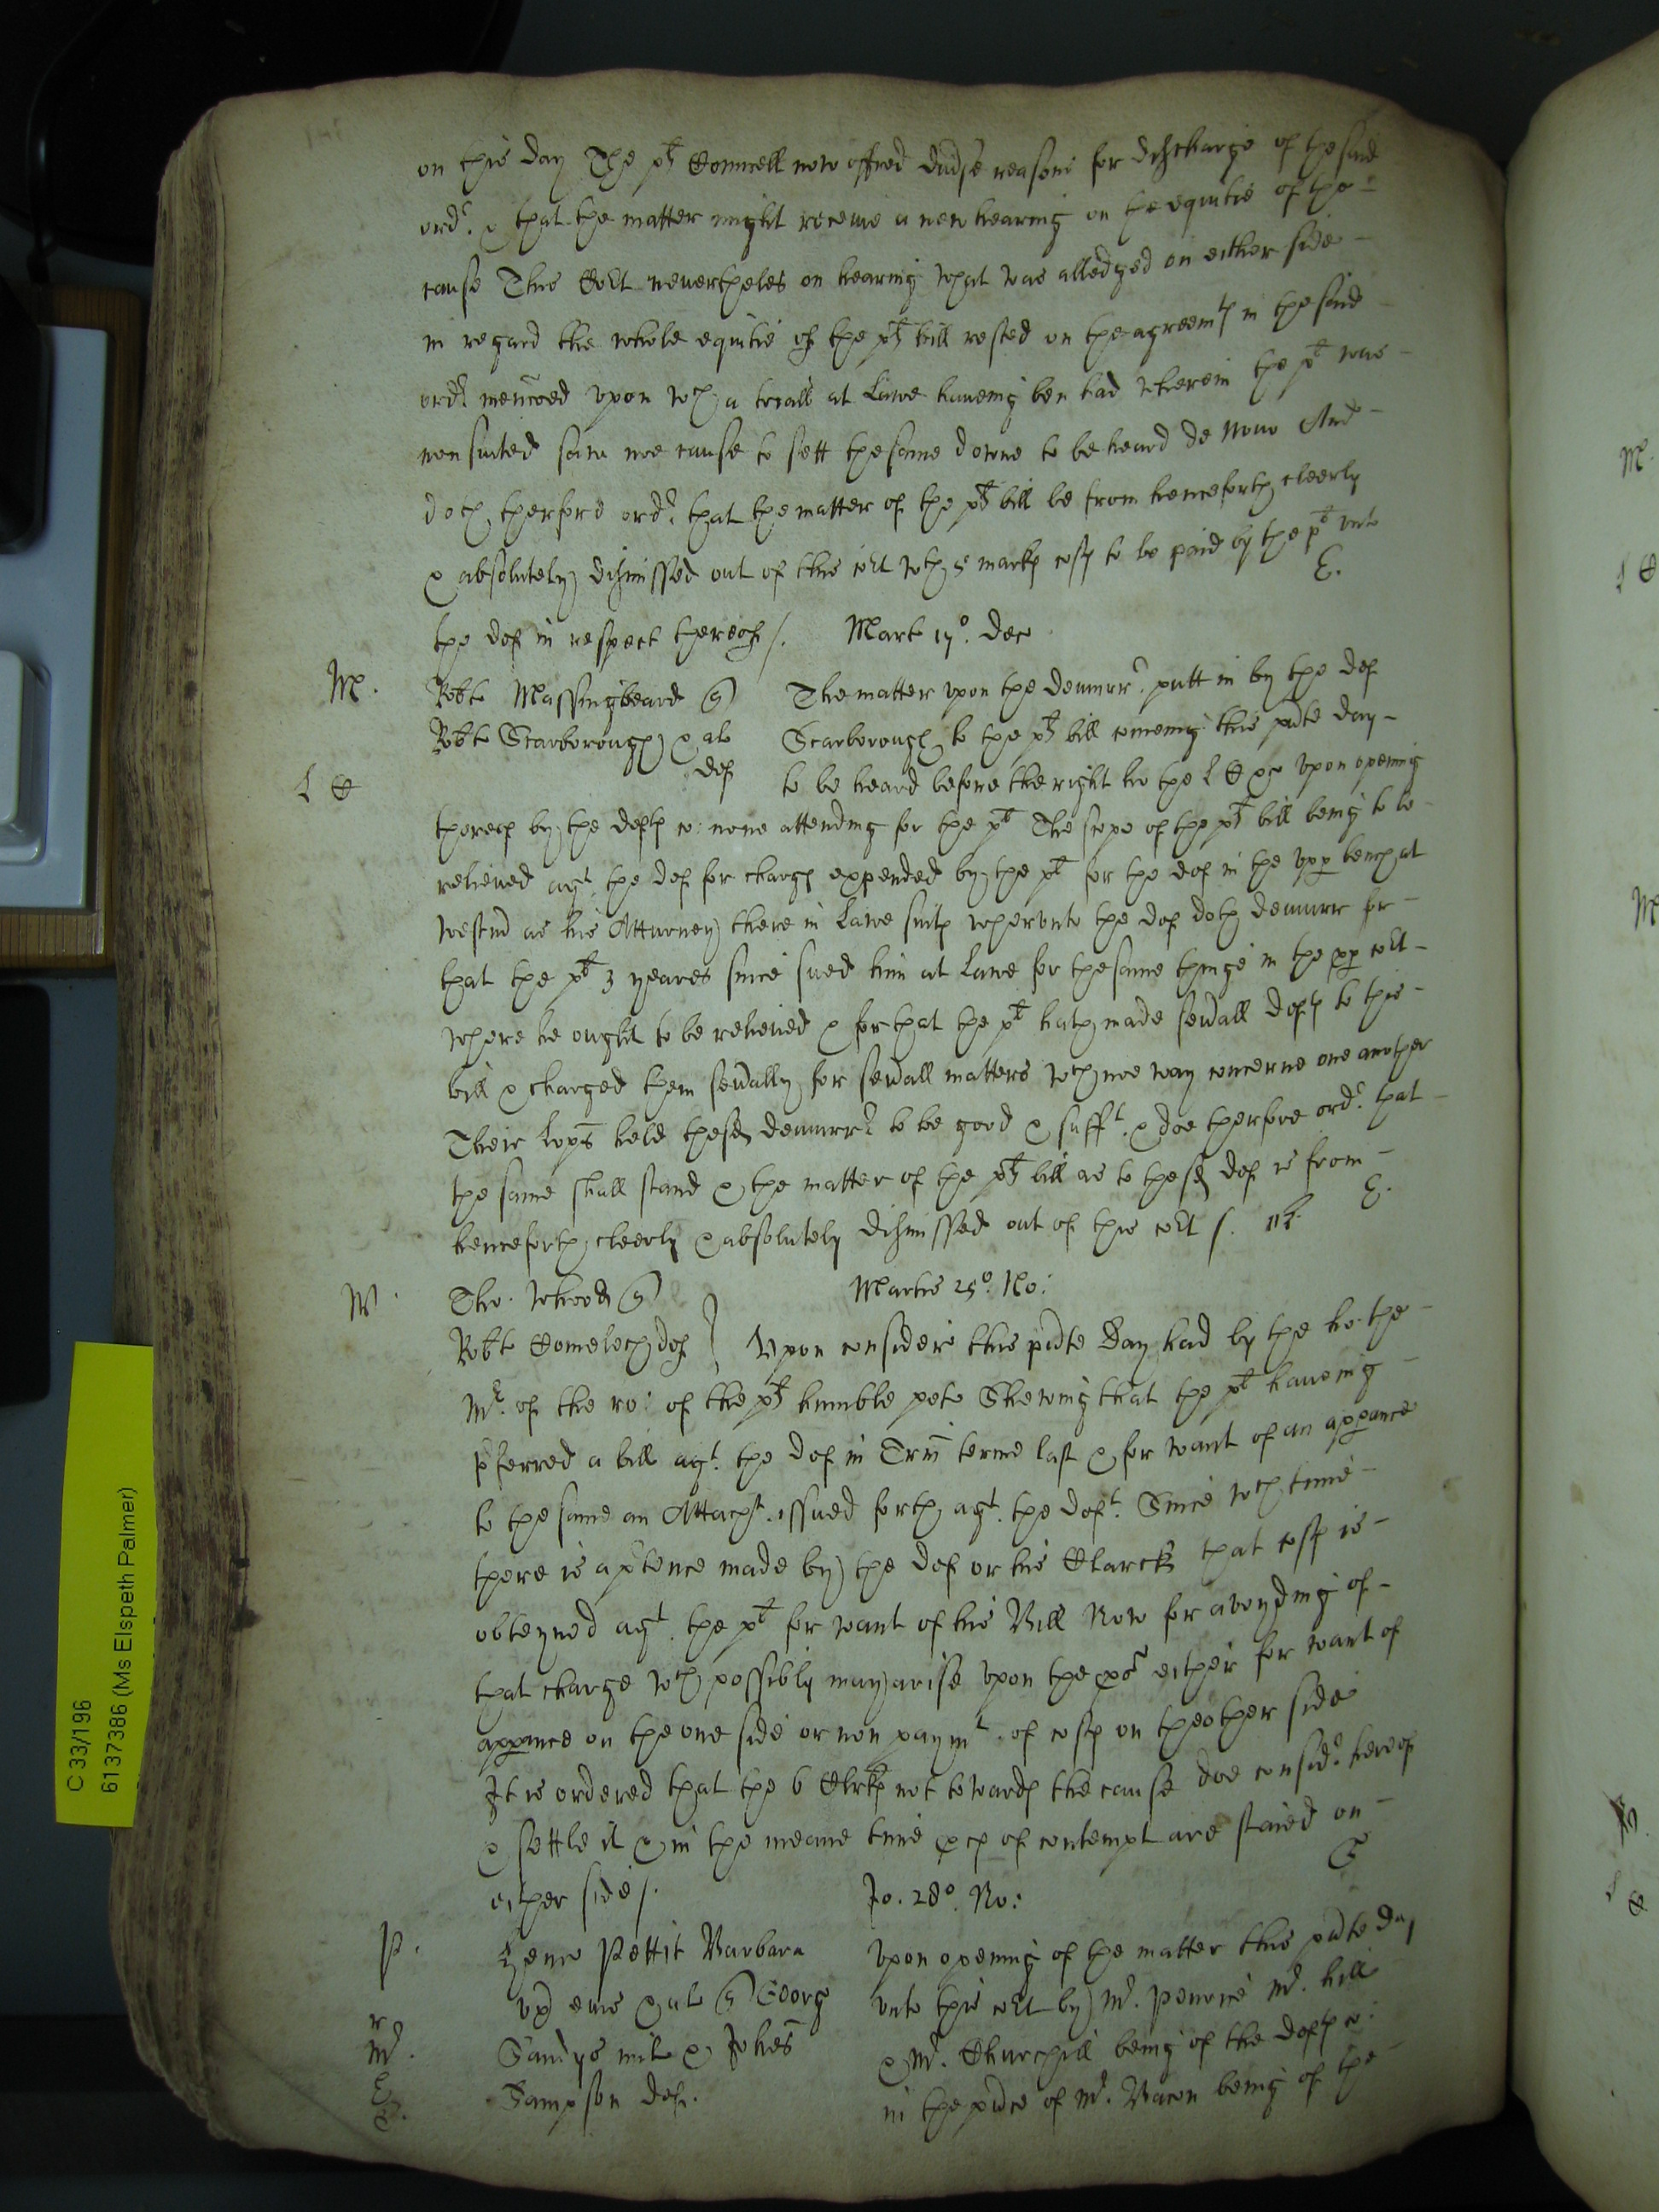 on this day The plts Councell now offred divse reasons for discharge of the said
ordr. & that the matter might receive a new hearing on the equitie of the
cause This Cort neuertheles on hearing what was alledged on either side
in regard the whole equitie of the plts bill rested on the agreemt in the said
ordr mencoed vpon wch a triall at Lawe haueing ben had wherein the plt was
nonsuited saw noe cause to sett the same downe to be heard de novo And
doth therfore ordr. that the matter of the plts bill be from henceforth cleerly
& absolutely dismissed out of this cort wth 5 marks costs to be paid by the plt vnto
the def in respect thereof /. Mart 17o. Dec
E.
M. Robte Massingbeard q The matter vpon the demurrr. putt in by the def
Robte Scarborough & al Scarborough to the plts bill comeing this pnte day
def to be heard before the right ho the L C &c vpon opening
L C
thereof by the defts co: none attending for the plt The scope of the plts bill being to be
relieved agt. the def for charges expended by the plt for the def in the vpp bench at
Westmr as his Atturney there in Lawe suits wherevnto the def doth demurr for
that the plt 3 yeares since sued him at Lawe for the same things in the pp cort
where he ought to be relieved & for that the plt hath made seuall defts to this
bill & charged them seually for seuall matters wch noe way concerne one another
Their Lopps held the sd demurrr to be good & sufft. & doe therfore ordr. that
the same shall stand & the matter of the plts bill as to the sd def is from
henceforth cleerly & absolutely dismissed out of this cort /.
E.
W. Tho. Whood q Martis 25o. No:
Robte Comelech def Vpon consideric this pnte day had by the ho. the
Mr. of the ro: of the plts humble peto Shewing that the plt haueing
pferred a bill agt. the def in Trin terme last & for want of an appance
to the same an Attachmt. issued forth agt. the deft. Since wch time
there is a ptence made by the def or his Clarck that costs is
obteyned agt. the plt for want of his Bill Now for avoyding of
that charge wch possibly may arise vpon the either for want of
appance on the one side or non paymt. of costs on the other side
It is ordered that the 6 Clrks not towards the cause doe considr. hereof
& settle it & in the meane time of contempt are staied on
either side /. Jo. 28o. No:
P. Henr Pettit Barbara Vpon opening of the matter this pnte day
vx eius & al q Georg vnto this cort by Mr. Penrice Mr. Hill
Mr. Sandys mil & Johes & Mr. Churchill being of the defts co:
Sampson def. in the pnce of Mr. Bacon being of the
C 33/196
6137386 (Ms Elspeth Palmer)